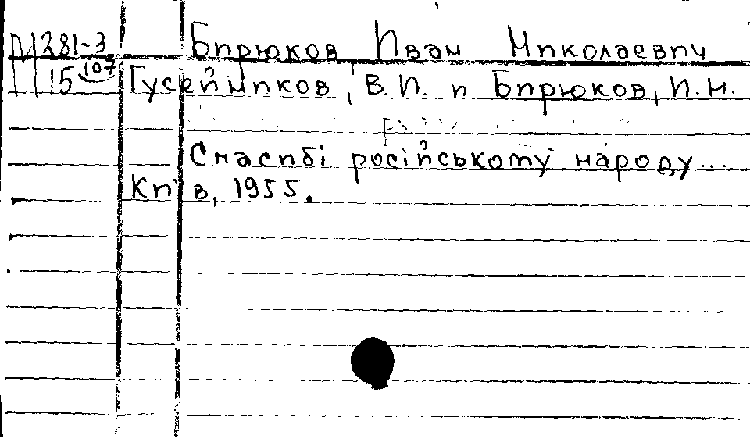 П 281-3 Бирюков Иван Николаевич
15 107 Гусейников, В.И. и Бирюков, И.Н.
Спасибі російському народу...
Київ, 1955.